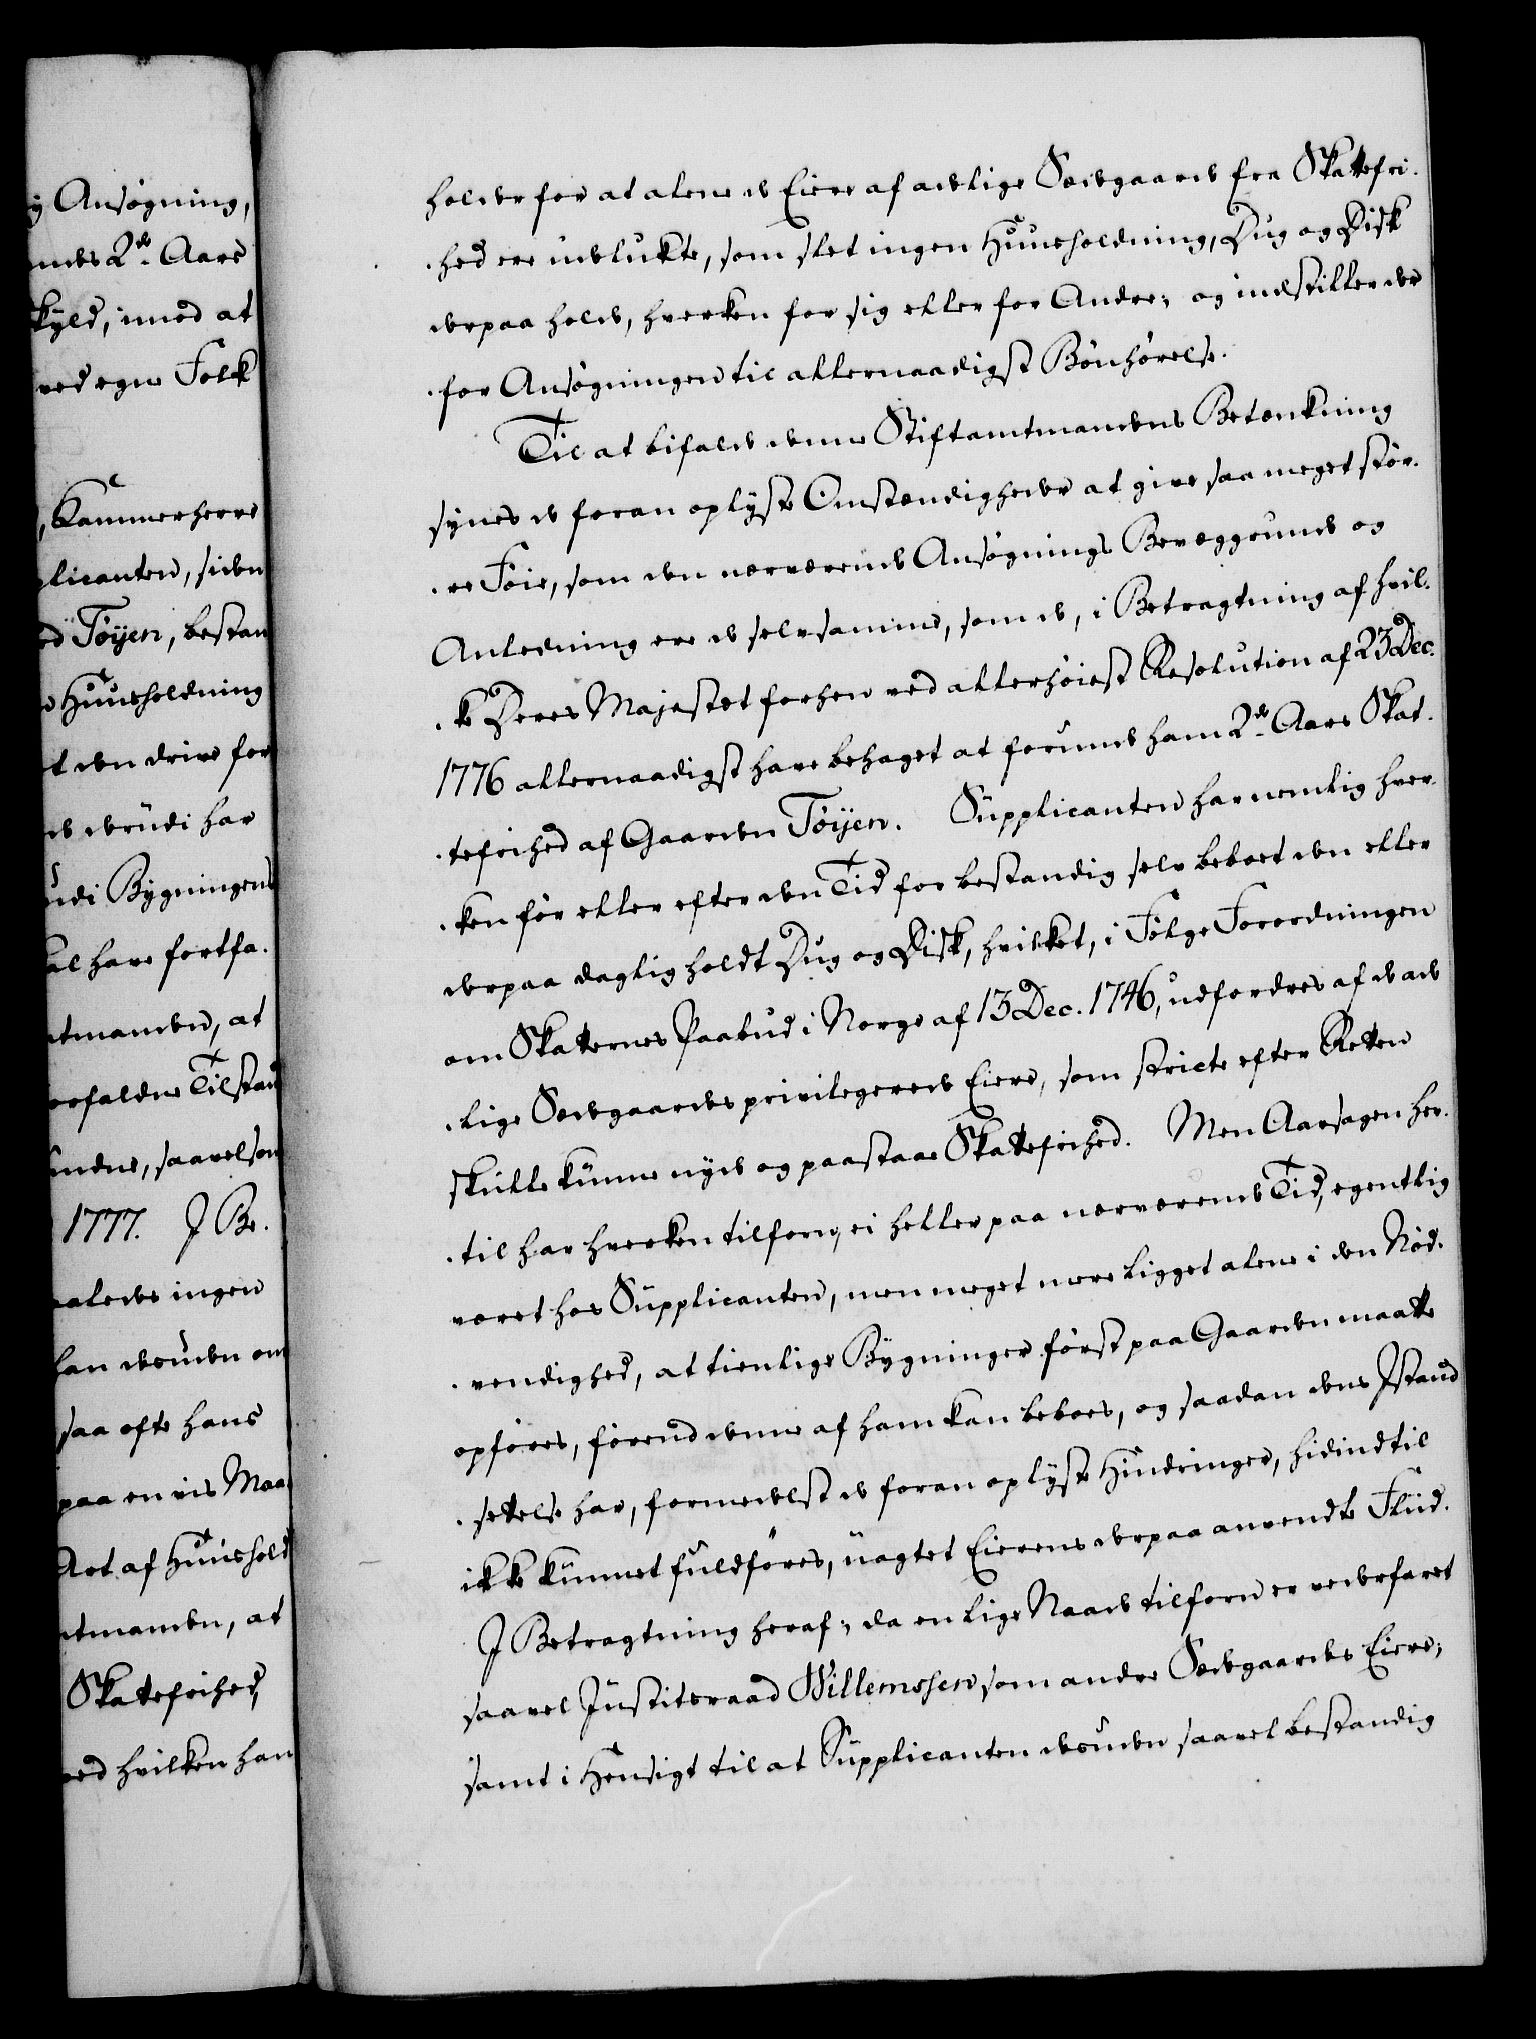 g Ansøgning,
2de Aars
skyld, imod at
ved egne Folk
, Kammerherre
plicanten, siden
ed Töyen, bestan
Huusholdning
t den drive for
de derudi har
udi Bygningens
al have fortfa-
tmanden, at
orfaldne Tilstand
indne, saavelsom
1777. J Be-
aaledes ingen
han desuden om
saa ofte hans
paa en vis Maa
Art af Huushold
tmanden, at
Skattefrihed,
ved hvilken han
holder for at alene de Eiere af adelige Sædegaarde fra Skattefri-
-hed ere udelukte, som slet ingen Huusholdning, Dug og Disk
derpaa holde, hverken for sig eller for Andre; og indstiller der
-for Ansøgningen til allernaadigst Bönhörelse.
Til at bifalde denne Stiftamtmandens Betænkning
synes de foran oplyste Omstændigheder at give saa meget stör-
-re Föie, som den nærværende Ansögnings Bevæggrunde og
Anledning ere de selvsamme, som de, i Betragtning af hvil-
-ke Deres Majestæt forhen ved allerhöiest Resolution af 23 Dec.
1776 allernaadigst have behaget at forunde ham 2de Aars Skat-
-tefrihed af Gaarden Töyen. Supplicanten har nemlig hver-
-ken för eller efter den Tid for bestandig selv beboet den eller
derpaa daglig holdt Dug og Disk, hvilket, i Fölge Forordningen
om Skatternes Paabud i Norge af 13 Dec. 1746, udfordres af de ade
-lige Sædegaardes privilegerede Eiere, som stricte efter Retten
skulle kunne nyde og paastaae Skattefrihed. Men Aarsagen her-
-til har hverken tilforn, ei heller paa nærværende Tid, egentlig
været hos Supplicanten, men meget mere ligget alene i den Nöd-
-vendighed, at tienlige Bygninger först paa Gaarden maatte
opföres, förend denne af ham kan beboes, og saadan dens Jstand
-settelse har, formedelst de foran oplyste Hindringer, hidindtil
ikke kunnet fuldföres, uagtet Eierens derpaa anvendte Fliid.
J Betragtning heraf; da en lige Naade tilforn er vederfaret
saavel Justitsraad Willemssen som andre Sædegaardes Eiere;
samt i Hensigt til at Supplicanten desuden saavel bestandig